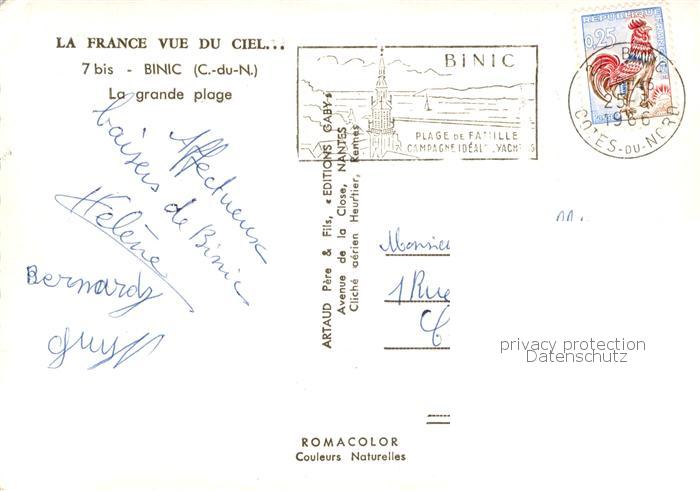 LA FRANCE VUE DU CIEL...
7 bis - BINIC (C.-du-N.)
La grande plage
Affectueux
baisers de Binic
Hélène
Bernard
Guy
ARTAUD Père & Fils, « EDITIONS GABY »
Avenue de la Close, NANTES
Cliché aérien Heurtier, Rennes
BINIC
PLAGE DE FAMILLE
CAMPAGNE IDÉAL YACH
REPUBLIQUE FRANÇAISE
0,25
25
1966
COTES-DU-NORD
Monsie
1 Rue
privacy protection
Datenschutz
ROMACOLOR
Couleurs Naturelles